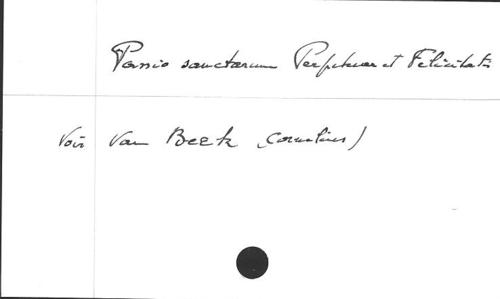 Passio sanctarum Perpetuae et Felicitatis
Voir Van Beek (Cornelius)